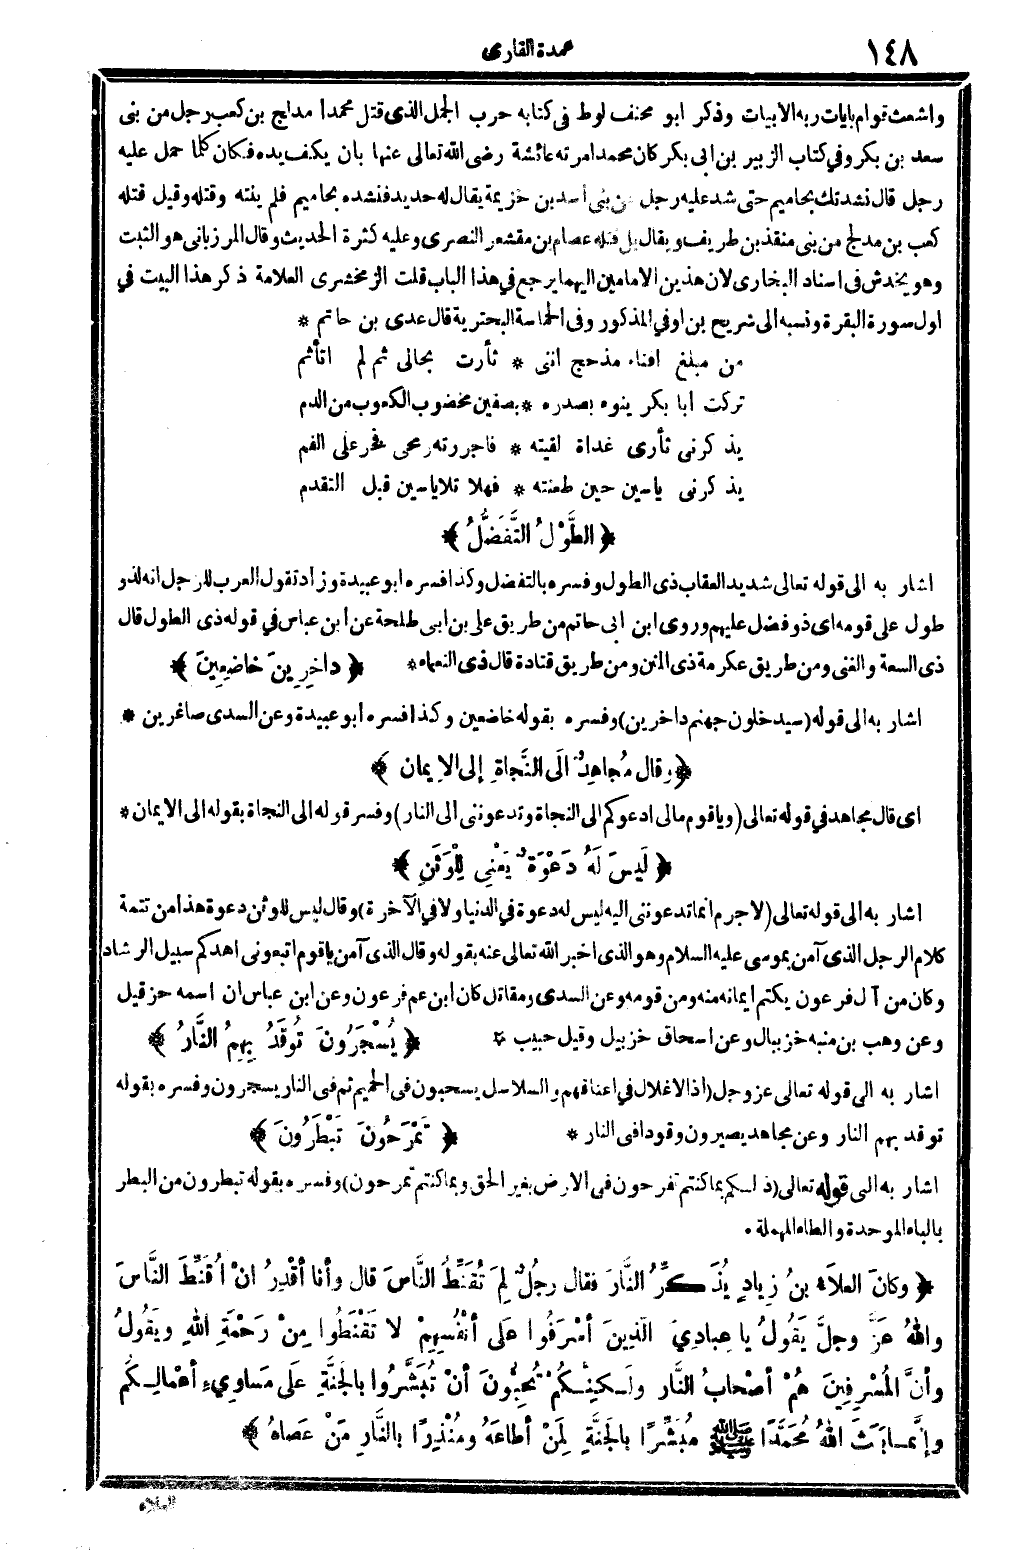 ١٤٨
عمدة القارى
واشعث قوام بايات ربه الابيات وذكر ابو مخنف لوط فى كتابه حرب الجمل الذى قتل محمدا مدلج بن كعب رجل من بنى
سعد بن بكر وفي كتاب الزبير بن ابى بكر كان محمد امرته عائشة رضى الله تعالى عنها بان يكف يده فكان كلما حمل عليه
رجل قال نشدتك بحاميم حتى شد عليه رجل من بنى أسد بن خزيمة يقال له حديد فنشده بحاميم فلم ينته وقتله وقيل قتله
كعب بن مدلج من بنى منقذ بن طريف ويقال بل قتله عصام بن مقشعر النصرى وعليه كثرة الحديث وقال المرزبانى هو الثبت
وهو يخدش فى اسناد البخارى لان هذين الامامين اليهما يرجع في هذا الباب قلت الزمخشرى العلامة ذكر هذا البيت في
اول سورة البقرة ونسبه الى شريح بن اوفي المذكور وفى الحماسة البحترية قال عدى بن حاتم *
من مبلغ افناء مذحج اننى * ثأرت بخالى ثم لم اتأثم
تركت أبا بكر ينوء بصدره * بصفين مخضوب الكعوب من الدم
يذكرنى ثأرى غداة لقيته * فاجررته رمحى فخر على الفم
يذكرنى ياسين حين طعنته * فهلا تلا ياسين قبل التقدم
﴿ الطَّوْلُ التَّفَضُّلُ ﴾
اشار به الى قوله تعالى شديد العقاب ذى الطول وفسره بالتفضل وكذا فسره ابو عبيدة وزاد تقول العرب للرجل انه لذو
طول على قومه اى ذو فضل عليهم وروى ابن ابى حاتم من طريق على بن ابى طلحة عن ابن عباس في قوله ذى الطول قال
ذى السعة والغنى ومن طريق عكرمة ذى المنن ومن طريق قتادة قال ذى النعماء * ﴿ داخِرِينَ خاضِعِينَ ﴾
اشار به الى قوله (سيدخلون جهنم داخرين) وفسره بقوله خاضعين وكذا فسره ابو عبيدة وعن السدى صاغرين *
﴿ وقال مُجاهِدٌ الَى النَّجاةِ إلى الإيمان ﴾
اى قال مجاهد في قوله تعالى (ويا قوم مالى ادعوكم الى النجاة وتدعوننى الى النار) وفسر قوله الى النجاة بقوله الى الايمان *
﴿ لَيسَ لَهُ دَعْوَةٌ يَعْنِي لِلْوَثَنِ ﴾
اشار به الى قوله تعالى (لا جرم انما تدعوننى اليه ليس له دعوة في الدنيا ولا في الآخرة) وقال ليس للوثن دعوة هذا من تتمة
كلام الرجل الذى آمن بموسى عليه السلام وهو الذى اخبر الله تعالى عنه بقوله وقال الذى آمن يا قوم اتبعونى اهدكم سبيل الرشاد
وكان من آل فرعون يكتم ايمانه منه ومن قومه وعن السدى ومقاتل كان ابن عم فرعون وعن ابن عباس ان اسمه حزقيل
وعن وهب بن منبه خزيبال وعن اسحاق خزبيل وقيل حبيب * ﴿ يُسْجَرُونَ تُوقَدُ بِهِمُ النَّارُ ﴾
اشار به الى قوله تعالى عز وجل (اذ الاغلال في اعناقهم والسلاسل يسحبون فى الحميم ثم فى النار يسجرون وفسره بقوله
توقد بهم النار وعن مجاهد يصيرون وقودا فى النار * ﴿ تَمْرَحُونَ تَبْطَرُونَ ﴾
اشار به الى قوله تعالى (ذلكم بما كنتم تفرحون فى الارض بغير الحق وبما كنتم تمرحون) وفسره بقوله تبطرون من البطر
بالباء الموحدة والطاء المهملة .
﴿ وكانَ العلاَءُ بنُ زِيادٍ يُذَكِّرُ النَّارَ فقال رجُلٌ لِمَ تُقَنِّطُ النَّاسَ قال وأنا أقْدِرُ انْ اُقَنِّطَ النَّاسَ
واللهُ عَزَّ وجلَّ يَقُولُ يا عِبادِيَ الَّذِينَ أسْرَفُوا عَلَى أنْفُسِهِمْ لا تَقْنَطُوا مِنْ رَحْمَةِ اللهِ ويَقُولُ
وأنَّ المُسْرِفِينَ هُمْ أصْحابُ النَّارِ ولَـكِنَّـكُمْ تُحِبُّونَ أنْ تُبَشَّرُوا بالجَنَّةِ عَلَى مَساوِيءِ أعْمالِـكُمْ
وإنَّمـا بَعَثَ اللهُ مُحَمَّدًا ﷺ مُبَشِّرًا بالجَنَّةِ لِمَنْ أطاعَهُ ومُنْذِرًا بالنَّارِ مَنْ عَصاهُ ﴾
العلاء